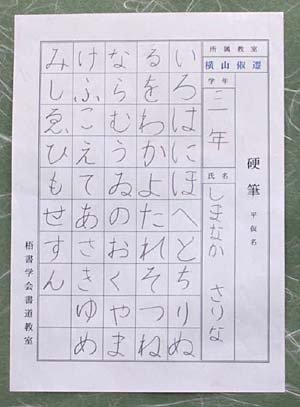 硬筆 平仮名
所属教室
横山
学年
三年
氏名
しまなか さりな
いろはにほへとちりぬ
るをわかよたれそつね
ならむうゐのおくやま
けふこえてあさきゆめ
みしゑひもせすん
梧書学会書道教室